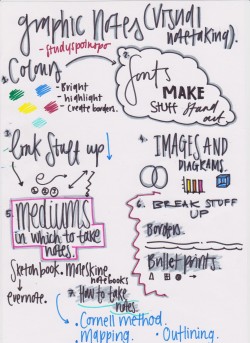 graphic notes (visual
notetaking).
- studyspo
1. Colours
- Bright
- highlight
- Create borders.
2. fonts
MAKE
stuff stand
out
3. break stuff up
4. IMAGES AND
DIAGRAMS.
5. mediums
in which to take
notes.
Sketchbook. Moleskine
notebooks
evernote.
6. BREAK STUFF
UP
Borders.
Bullet points.
7. How to take
notes.
Cornell method.
Mapping. • Outlining.